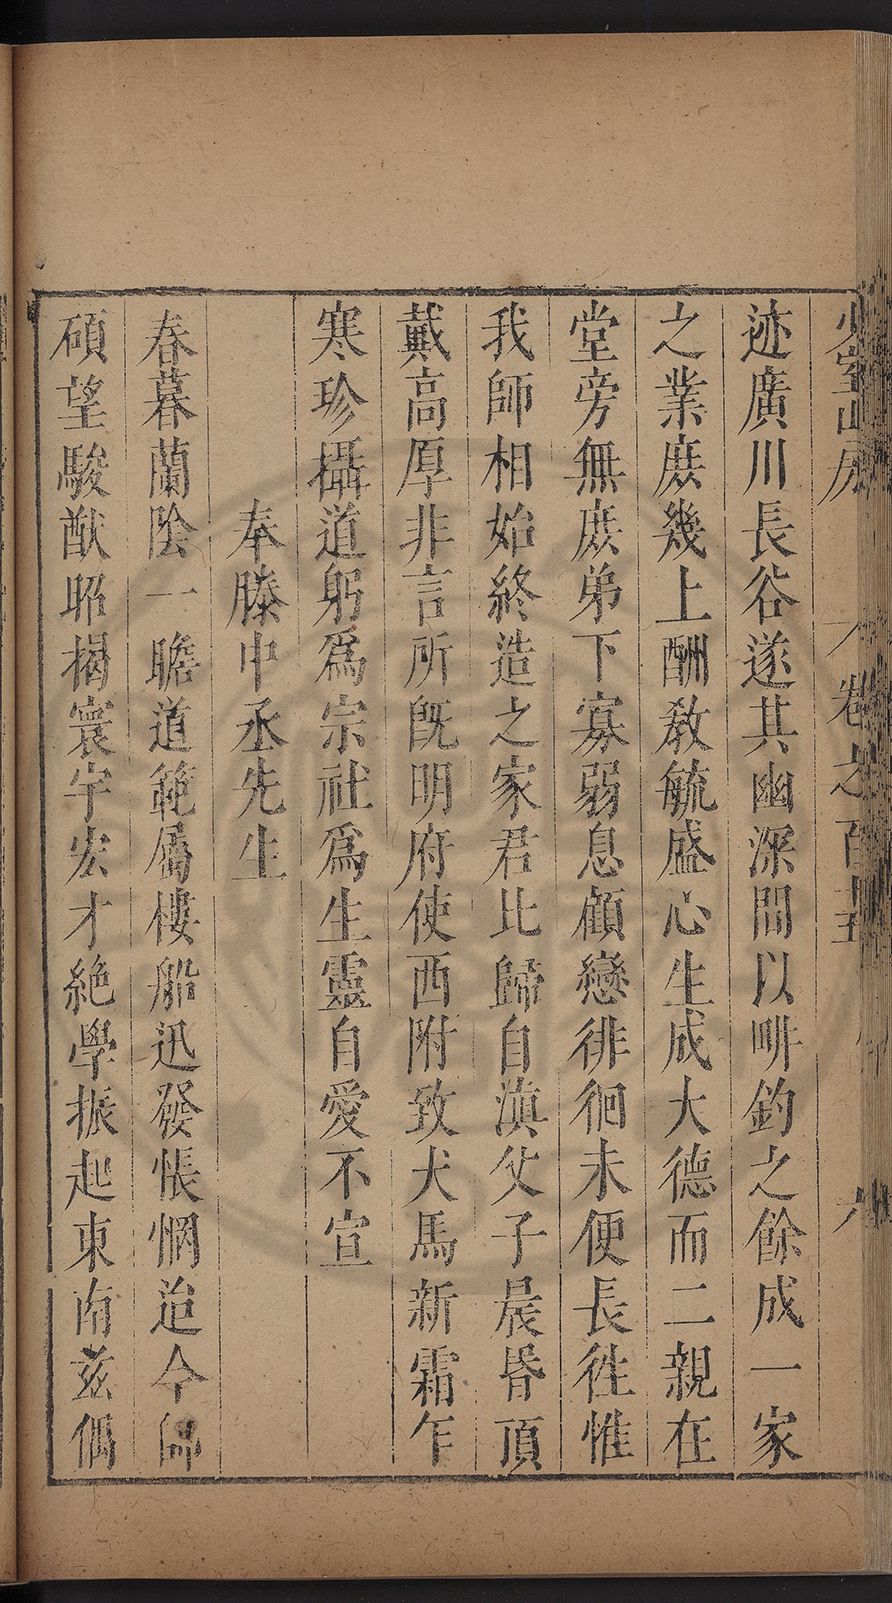 少室山房 卷之百 六
迹廣川長谷遂其幽深間以畊釣之餘成一家
之業庶幾上酬敎毓盛心生成大德而二親在
堂旁無庶弟下寡弱息顧戀徘徊未便長徃惟
我師相始終造之家君比歸自滇父子晨昏頂
戴高厚非言所旣明府使西附致犬馬新霜乍
寒珍攝道躬爲宗社爲生靈自愛不宣
奉滕中丞先生
春暮蘭陰一瞻道範屬樓船迅發悵惘迨今師
碩望駿猷昭揭寰宇宏才絶學振起東南兹偶